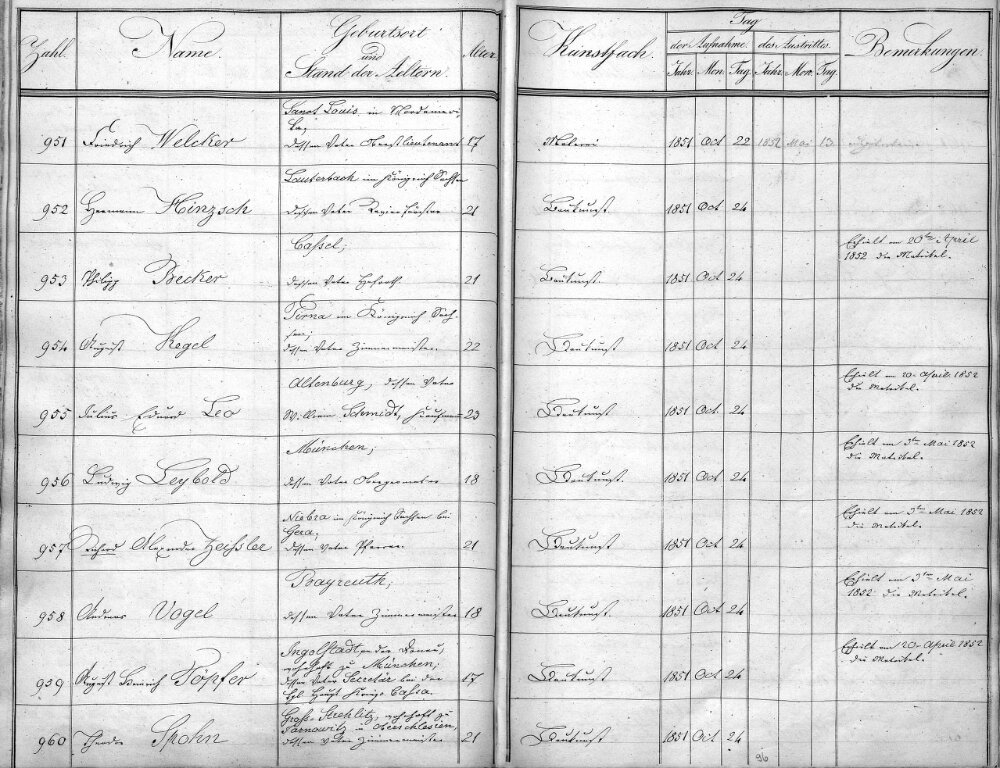 Zahl. Name. Geburtsort und Stand der Aeltern. Alter Kunstfach. Tag der Aufnahme. des Austrittes. Bemerkungen.
Jahr. Mon. Tag Jahr. Mon. Tag.
Sanct Louis, in Nordameri-
ka,
951 Friedrich Welcker dessen Vater Oberstlieutenant 17 Malerei 1851 Oct 22 1852 Mai 13
Lauterbach im Königreich Sachsen
952 Hermann Hinzsch dessen Vater 21 Baukunst 1851 Oct 24
Cassel;
Erhielt am 20ten April
1852 die Matrikel.
953 Philipp Becker dessen Vater 21 Baukunst 1851 Oct 24
Pirna im Königreich Sach-
sen;
954 August Kegel dessen Vater Zimmermeister 22 Baukunst 1851 Oct 24
Altenburg, dessen Vater
Erhielt am 20. April 1852
die Matrikel.
955 Julius Eduard Leo Wilhelm Schmidt, Kaufmann 23 Baukunst 1851 Oct. 24
München;
Erhielt am 3ten Mai 1852
die Matrikel.
956 Ludwig Leybold dessen Vater 18 Baukunst 1851 Oct 24
Niebra im Königreich Sachsen bei
Gera;
Erhielt am 3ten Mai 1852
die Matrikel.
957 Richard Alexander Zeissler dessen Vater Pfarrer. 21 Baukunst 1851 Oct 24
Bayreuth;
Erhielt am 3ten Mai
1852 die Matrikel.
958 Andreas Vogel dessen Vater Zimmermeister 18 Baukunst 1851 Oct 24
Ingolstadt an der Donau,
wohnhaft zu München;
Erhielt am 20. April 1852
die Matrikel.
959 August Heinrich Töpfer dessen Vater Secretär bei der 17 Baukunst 1851 Oct 24
kgl. Haupt Cassa.
Groß-Strehlitz, wohnhaft zu
Tarnowitz in Oberschlesien,
960 Theodor Spohn dessen Vater Zimmermeister 21 Baukunst 1851 Oct 24
96